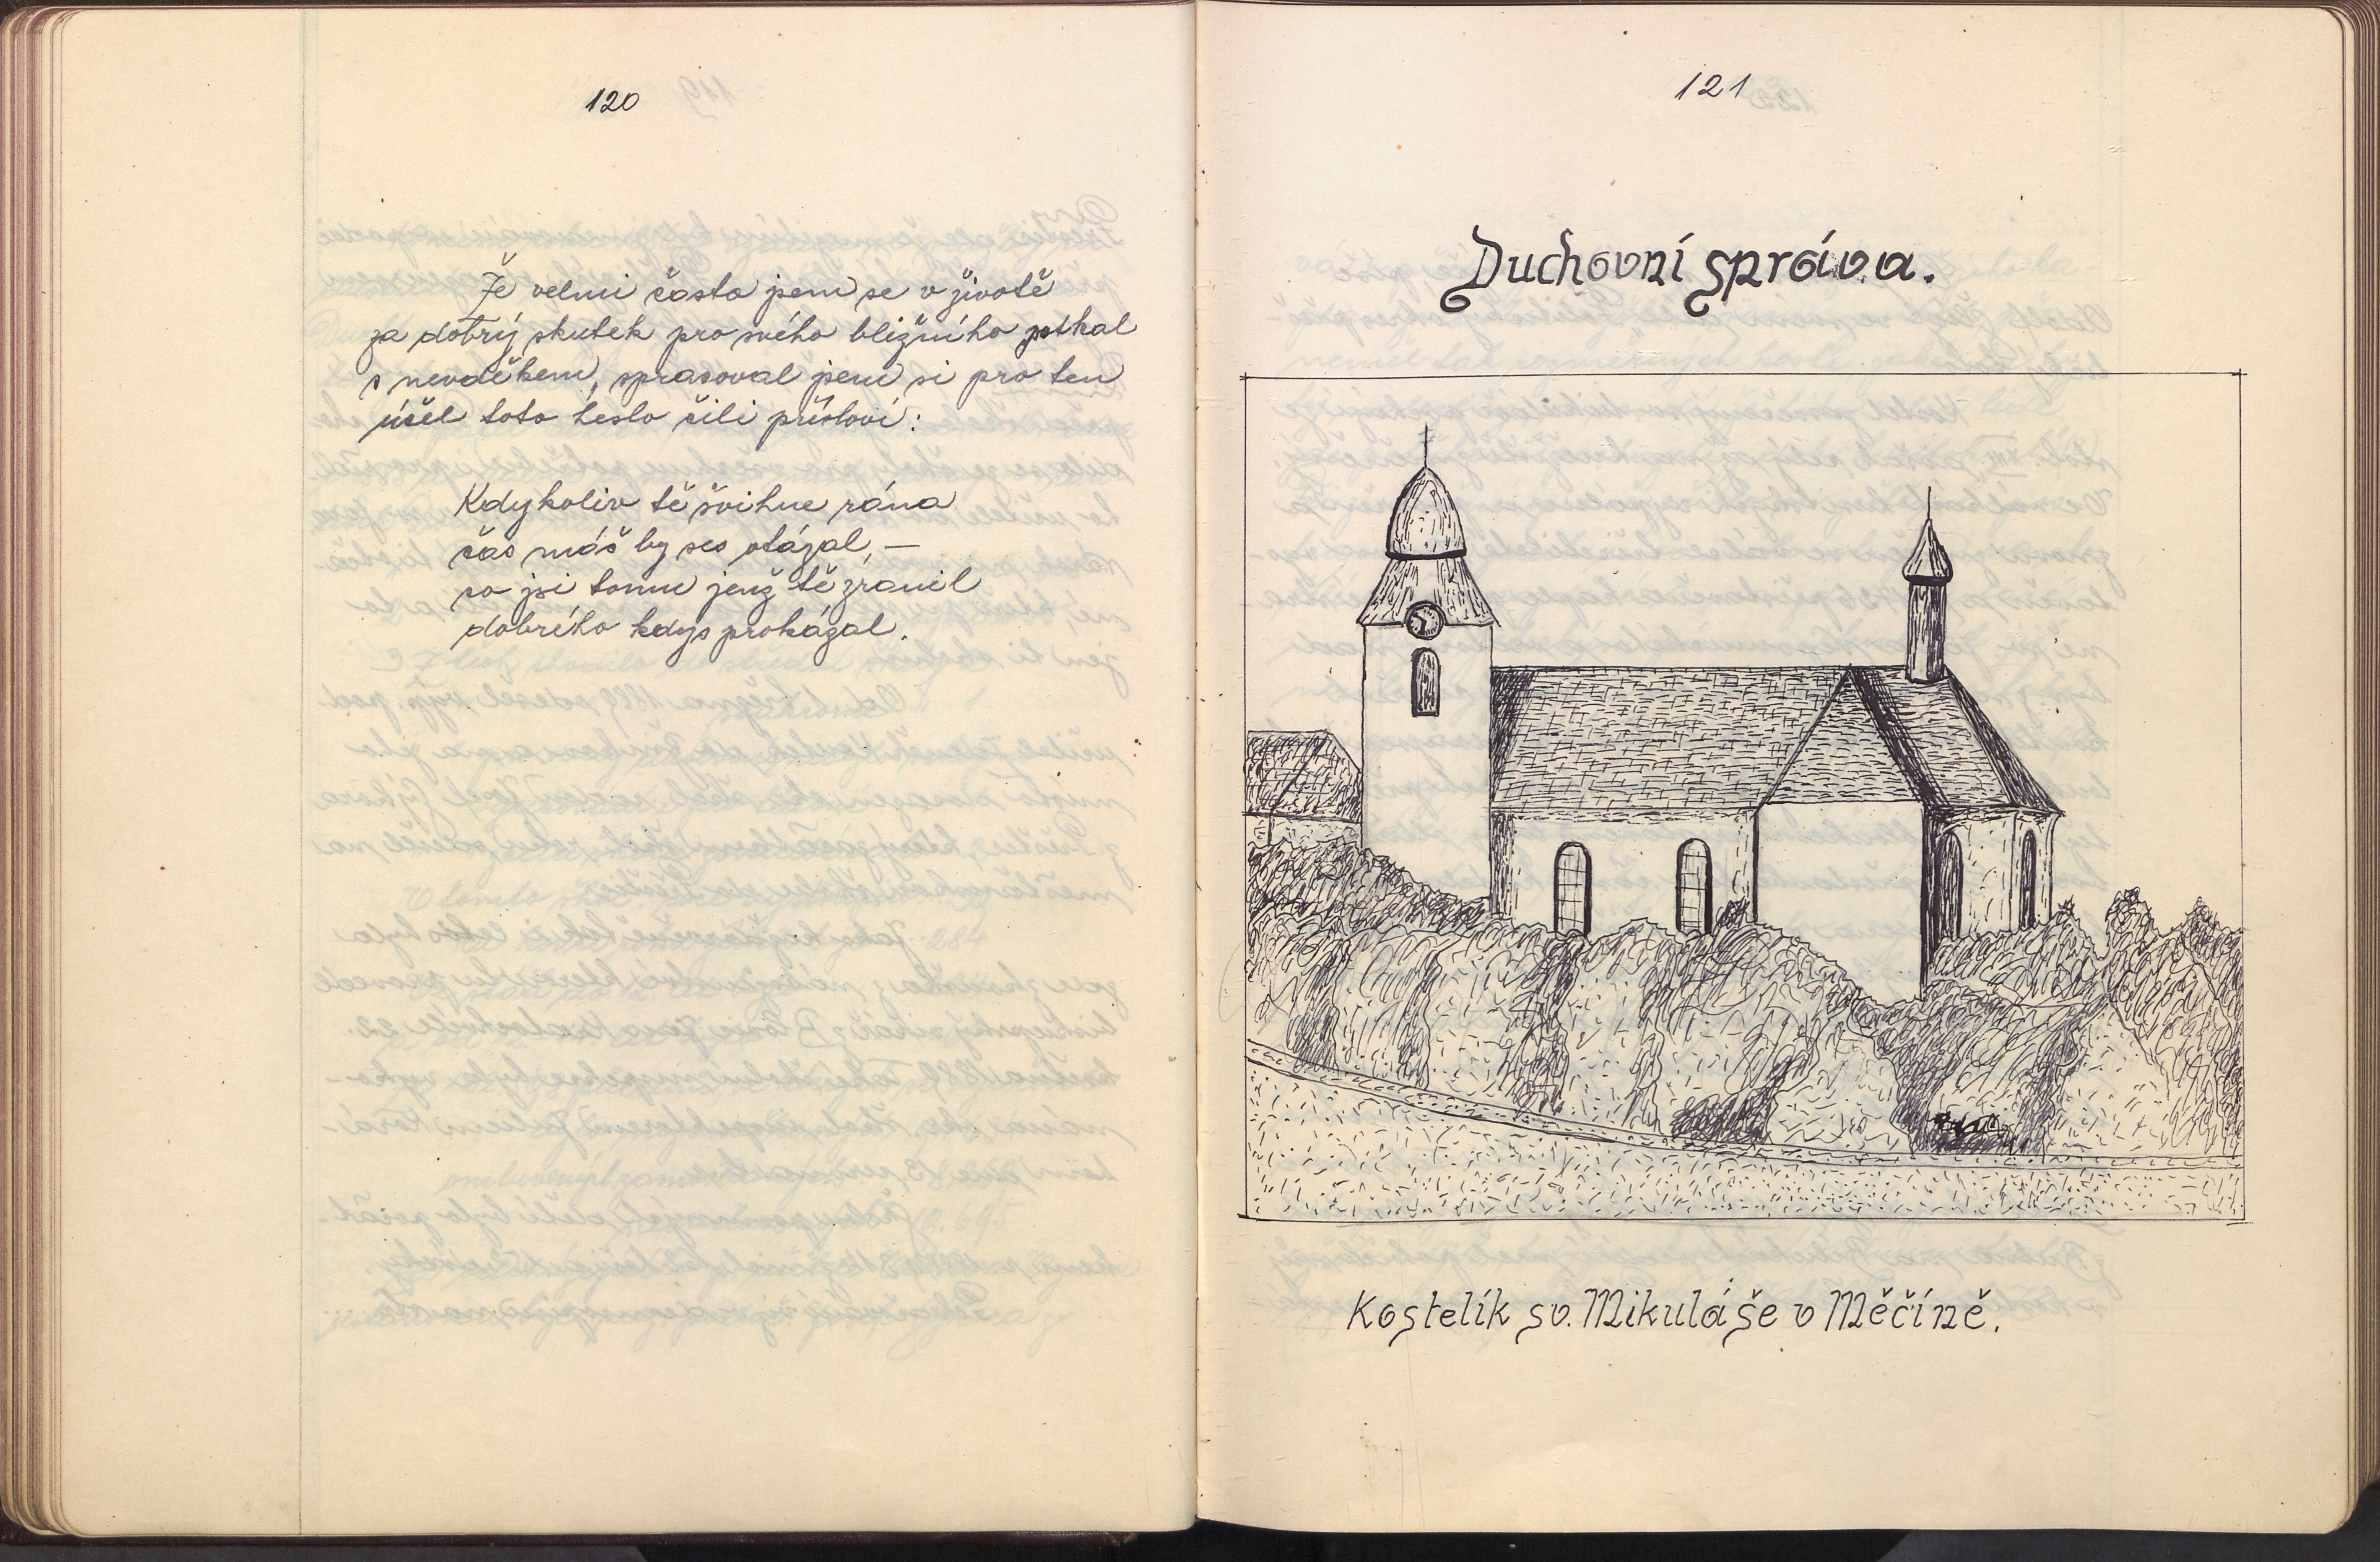 120
Že velmi často jsem se v životě
za dobrý skutek pro svého bližního potkal
s nevděkem, spracoval jsem si pro ten
účel toto heslo čili přísloví:
Kdykoliv tě švihne rána
čas máš by ses otázal, —
co jsi tomu jenž tě zranil
dobrého kdys prokázal.
121
Duchovní správa.
Kostelík sv. Mikuláše v Měčíně.